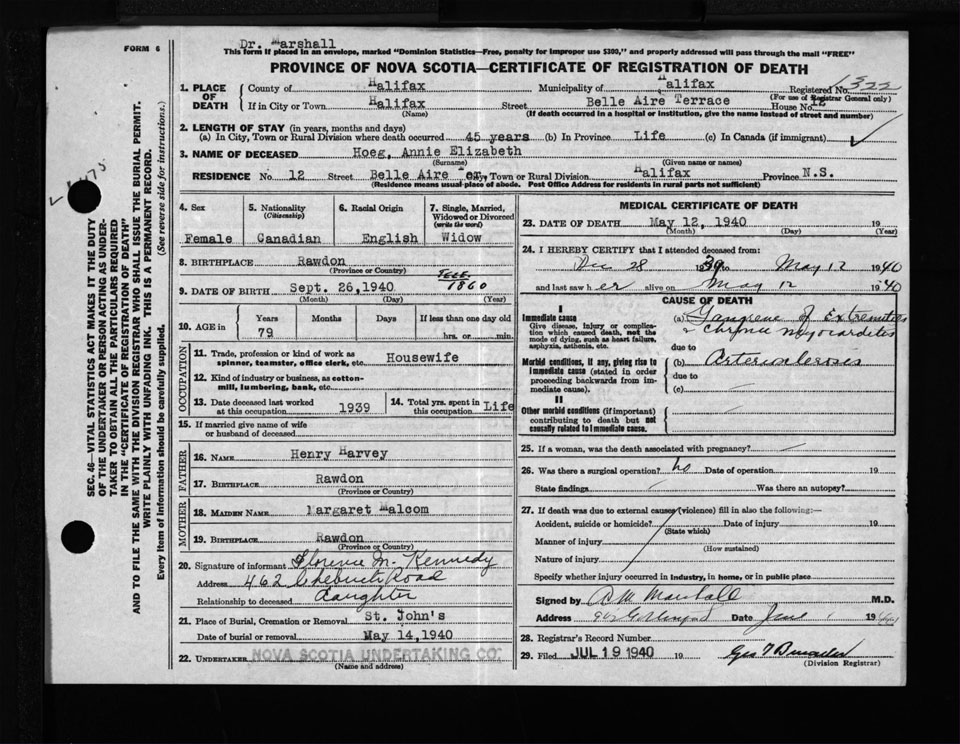 FORM 6
Dr. Marshall
This form if placed in an envelope, marked "Dominion Statistics—Free, penalty for improper use $300," and properly addressed will pass through the mail "FREE"
PROVINCE OF NOVA SCOTIA—CERTIFICATE OF REGISTRATION OF DEATH
1. PLACE OF DEATH County of Halifax Municipality of Halifax Registered No. 1322
(For use of Registrar General only)
If in City or Town Halifax Street Belle Aire Terrace House No. 12
(Name) (If death occurred in a hospital or institution, give the name instead of street and number)
2. LENGTH OF STAY (in years, months and days)
(a) In City, Town or Rural Division where death occurred 45 years (b) In Province Life (c) In Canada (if immigrant)
3. NAME OF DECEASED Hoeg, Annie Elizabeth
(Surname) (Given name or names)
RESIDENCE No. 12 Street Belle Aire Ter, Town or Rural Division Halifax Province N.S.
(Residence means usual place of abode. Post Office Address for residents in rural parts not sufficient)
4. Sex Female
5. Nationality (Citizenship) Canadian
6. Racial Origin English
7. Single, Married, Widowed or Divorced (write the word) Widow
8. BIRTHPLACE Rawdon
(Province or Country)
9. DATE OF BIRTH Sept. 26, 1940 1860
(Month) (Day) (Year)
10. AGE in Years Months Days If less than one day old
79 hrs. or min.
OCCUPATION
11. Trade, profession or kind of work as spinner, teamster, office clerk, etc. Housewife
12. Kind of industry or business, as cotton-mill, lumbering, bank, etc.
13. Date deceased last worked at this occupation 1939 14. Total yrs. spent in this occupation Life
15. If married give name of wife or husband of deceased
FATHER
16. NAME Henry Harvey
17. BIRTHPLACE Rawdon
(Province or Country)
MOTHER
18. MAIDEN NAME Margaret Malcom
19. BIRTHPLACE Rawdon
(Province or Country)
20. Signature of informant Florence M. Kennedy
Address 462 Chebucto Road
Relationship to deceased daughter
21. Place of Burial, Cremation or Removal St. John's
Date of burial or removal May 14, 1940
22. UNDERTAKER NOVA SCOTIA UNDERTAKING CO.
(Name and address)
MEDICAL CERTIFICATE OF DEATH
23. DATE OF DEATH May 12, 1940 19
(Month) (Day) (Year)
24. I HEREBY CERTIFY that I attended deceased from:
Dec 28 1939 to May 12 1940
and last saw her alive on May 12 1940
CAUSE OF DEATH
I
Immediate cause
Give disease, injury or complication which caused death, not the mode of dying, such as heart failure, asphyxia, asthenia, etc.
(a) Gangrene of Extremities
Chronic myocarditis
due to
Morbid conditions, if any, giving rise to immediate cause (stated in order proceeding backwards from immediate cause).
(b) Arteriosclerosis
due to
(c)
II
Other morbid conditions (if important) contributing to death but not causally related to immediate cause.
25. If a woman, was the death associated with pregnancy?
26. Was there a surgical operation? no Date of operation 19
State findings Was there an autopsy?
27. If death was due to external causes (violence) fill in also the following:—
Accident, suicide or homicide? Date of injury 19
(State which)
Manner of injury
(How sustained)
Nature of injury
Specify whether injury occurred in industry, in home, or in public place
Signed by Marshall M.D.
Address Date June 1 1940
28. Registrar's Record Number
29. Filed JUL 19 1940 19
(Division Registrar)
SEC. 46—VITAL STATISTICS ACT MAKES IT THE DUTY
OF THE UNDERTAKER OR PERSON ACTING AS UNDER-
TAKER TO OBTAIN ALL THE PARTICULARS REQUIRED
IN THE "CERTIFICATE OF REGISTRATION OF DEATH"
AND TO FILE THE SAME WITH THE DIVISION REGISTRAR WHO SHALL ISSUE THE BURIAL PERMIT.
WRITE PLAINLY WITH UNFADING INK. THIS IS A PERMANENT RECORD.
Every item of information should be carefully supplied. (See reverse side for instructions.)